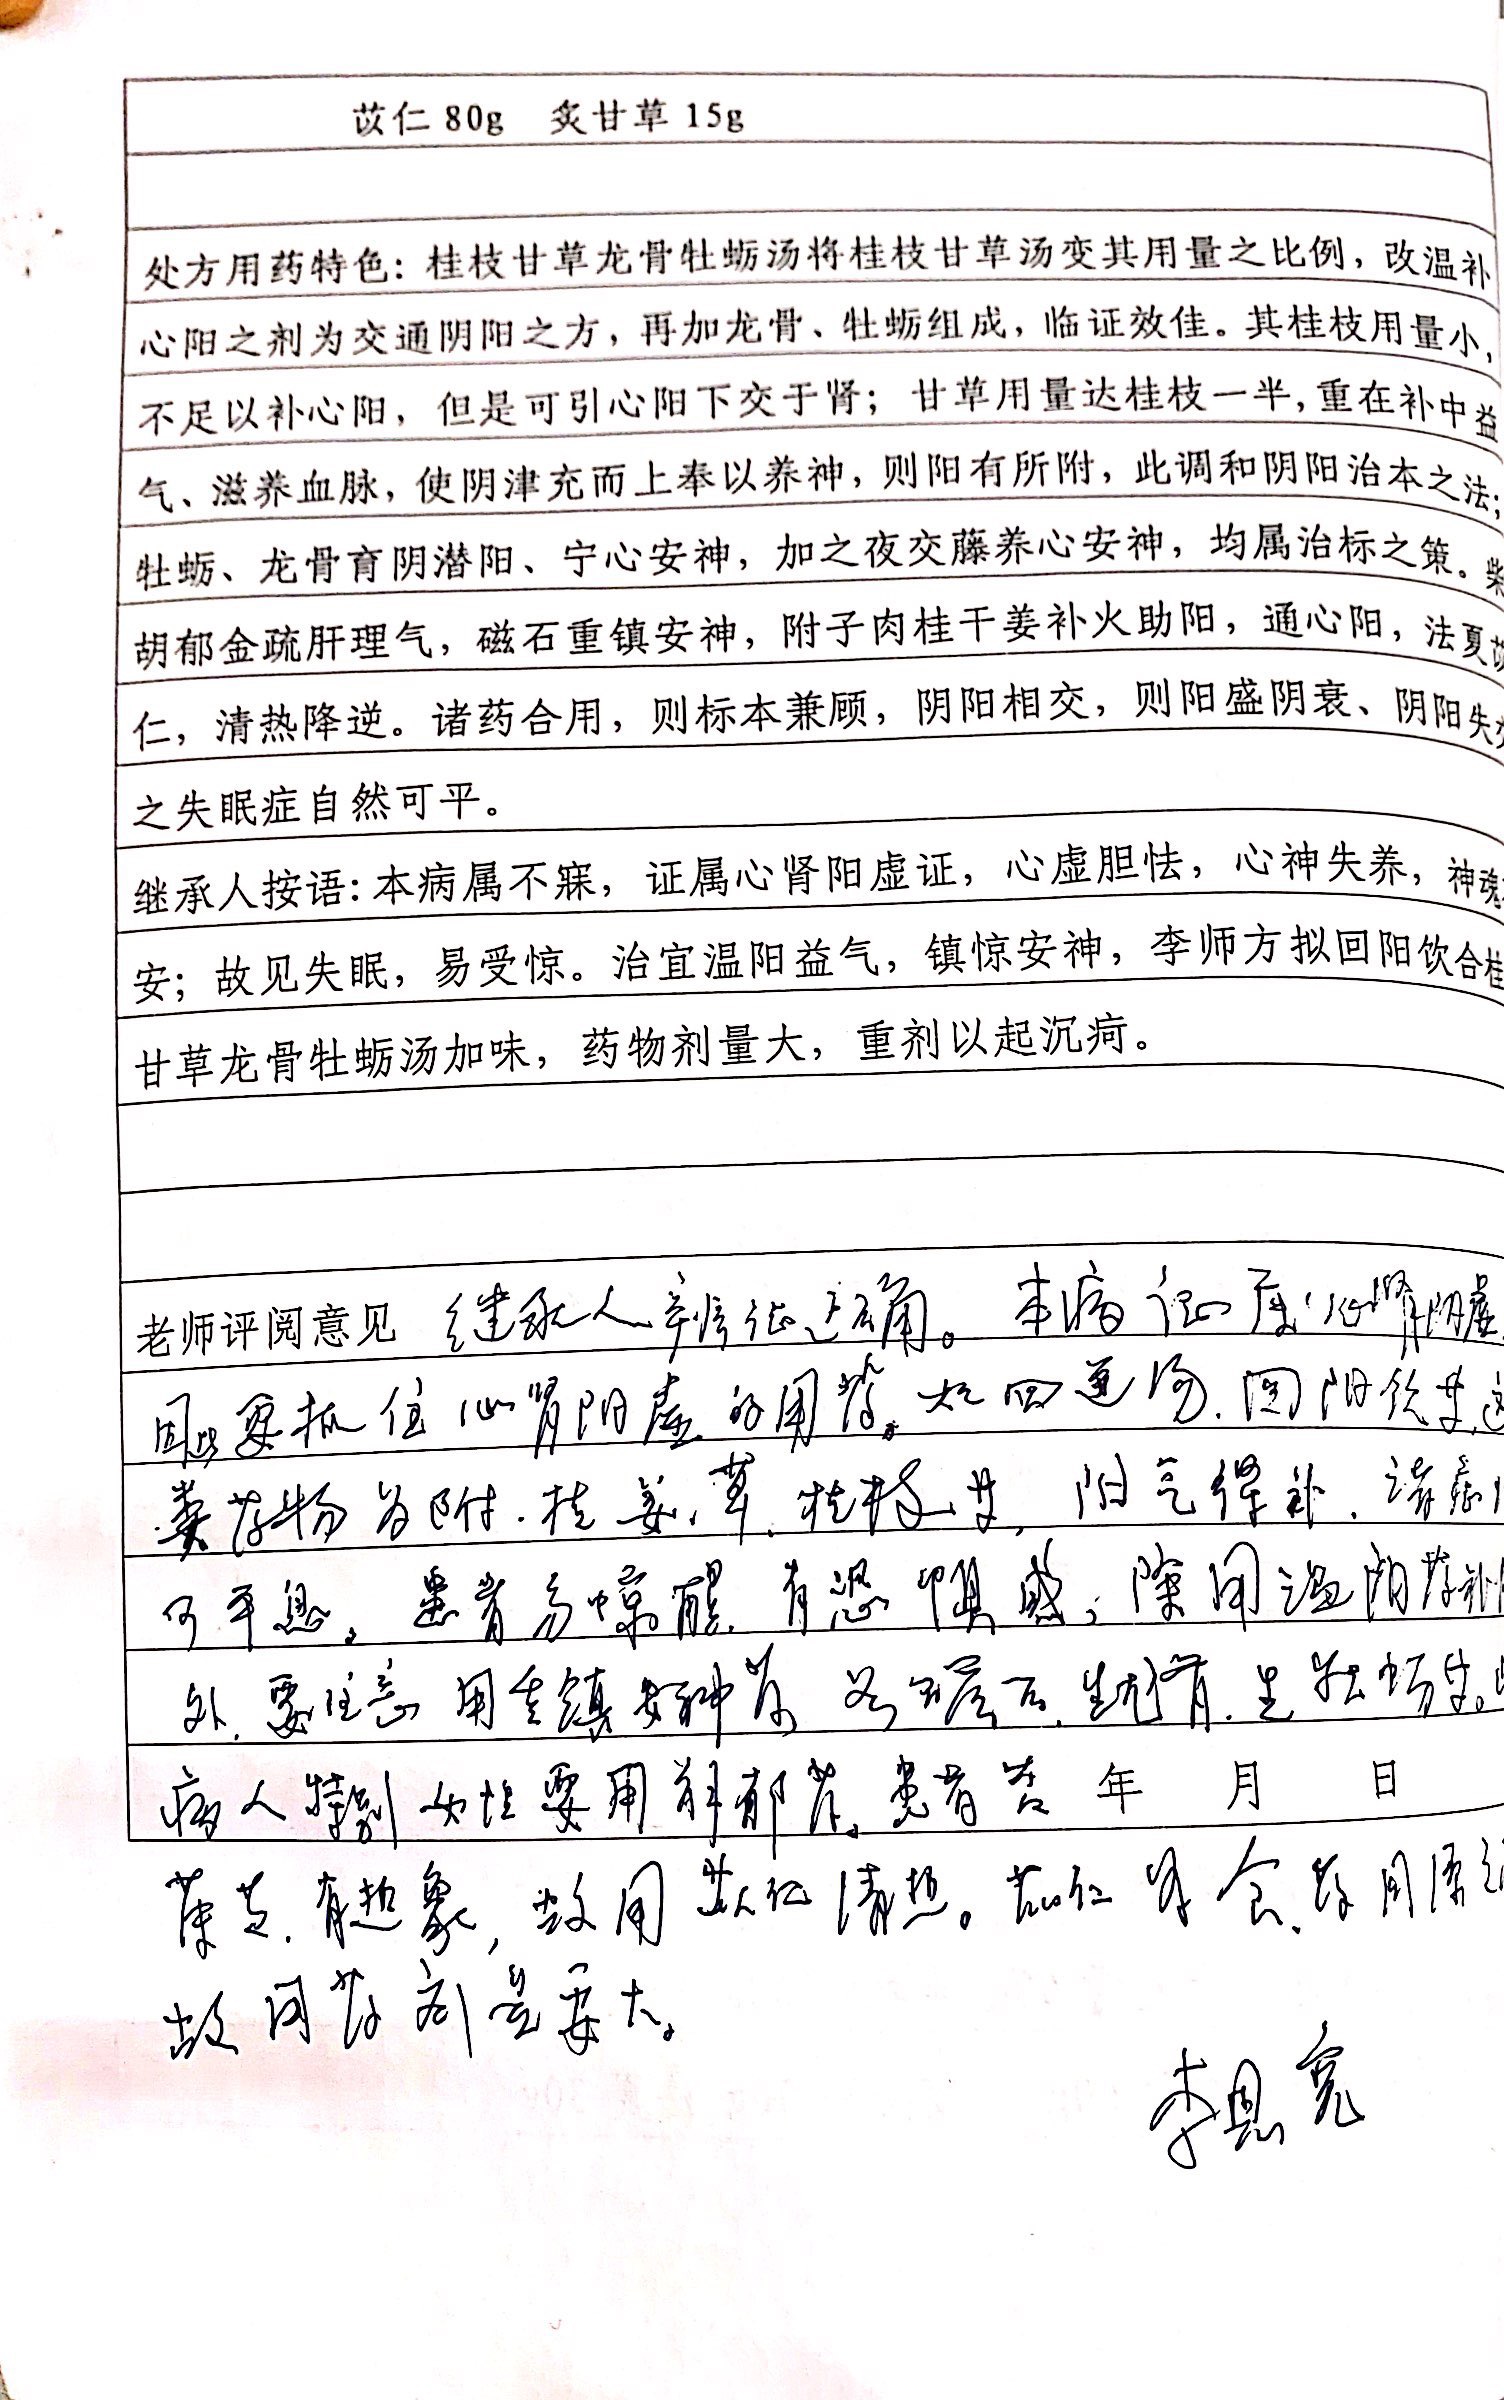 苡仁 80g 炙甘草 15g
处方用药特色：桂枝甘草龙骨牡蛎汤将桂枝甘草汤变其用量之比例，改温补
心阳之剂为交通阴阳之方，再加龙骨、牡蛎组成，临证效佳。其桂枝用量小，
不足以补心阳，但是可引心阳下交于肾；甘草用量达桂枝一半，重在补中益
气、滋养血脉，使阴津充而上奉以养神，则阳有所附，此调和阴阳治本之法；
牡蛎、龙骨育阴潜阳、宁心安神，加之夜交藤养心安神，均属治标之策。柴
胡郁金疏肝理气，磁石重镇安神，附子肉桂干姜补火助阳，通心阳，法夏苡
仁，清热降逆。诸药合用，则标本兼顾，阴阳相交，则阳盛阴衰、阴阳失交
之失眠症自然可平。
继承人按语：本病属不寐，证属心肾阳虚证，心虚胆怯，心神失养，神魂
安；故见失眠，易受惊。治宜温阳益气，镇惊安神，李师方拟回阳饮合桂
甘草龙骨牡蛎汤加味，药物剂量大，重剂以起沉疴。
老师评阅意见 继承人辛辨证正确。本病证属心肾阳虚
因此要抓住心肾阳虚的用药。如四逆汤.回阳饮等,这
类药物为附.桂.姜.草.桂枝等,阳气得补.诸症
可平息。患者易惊醒.有恐惧感,除用温阳药补
外.要注意用重镇安神药 如磁石.生龙骨.生牡蛎等。
病人特别女性要用解郁药。患者苔 年 月 日
薄黄.有热象,故用苡仁清热。苡仁药食
故用药剂量要大。
李思宽